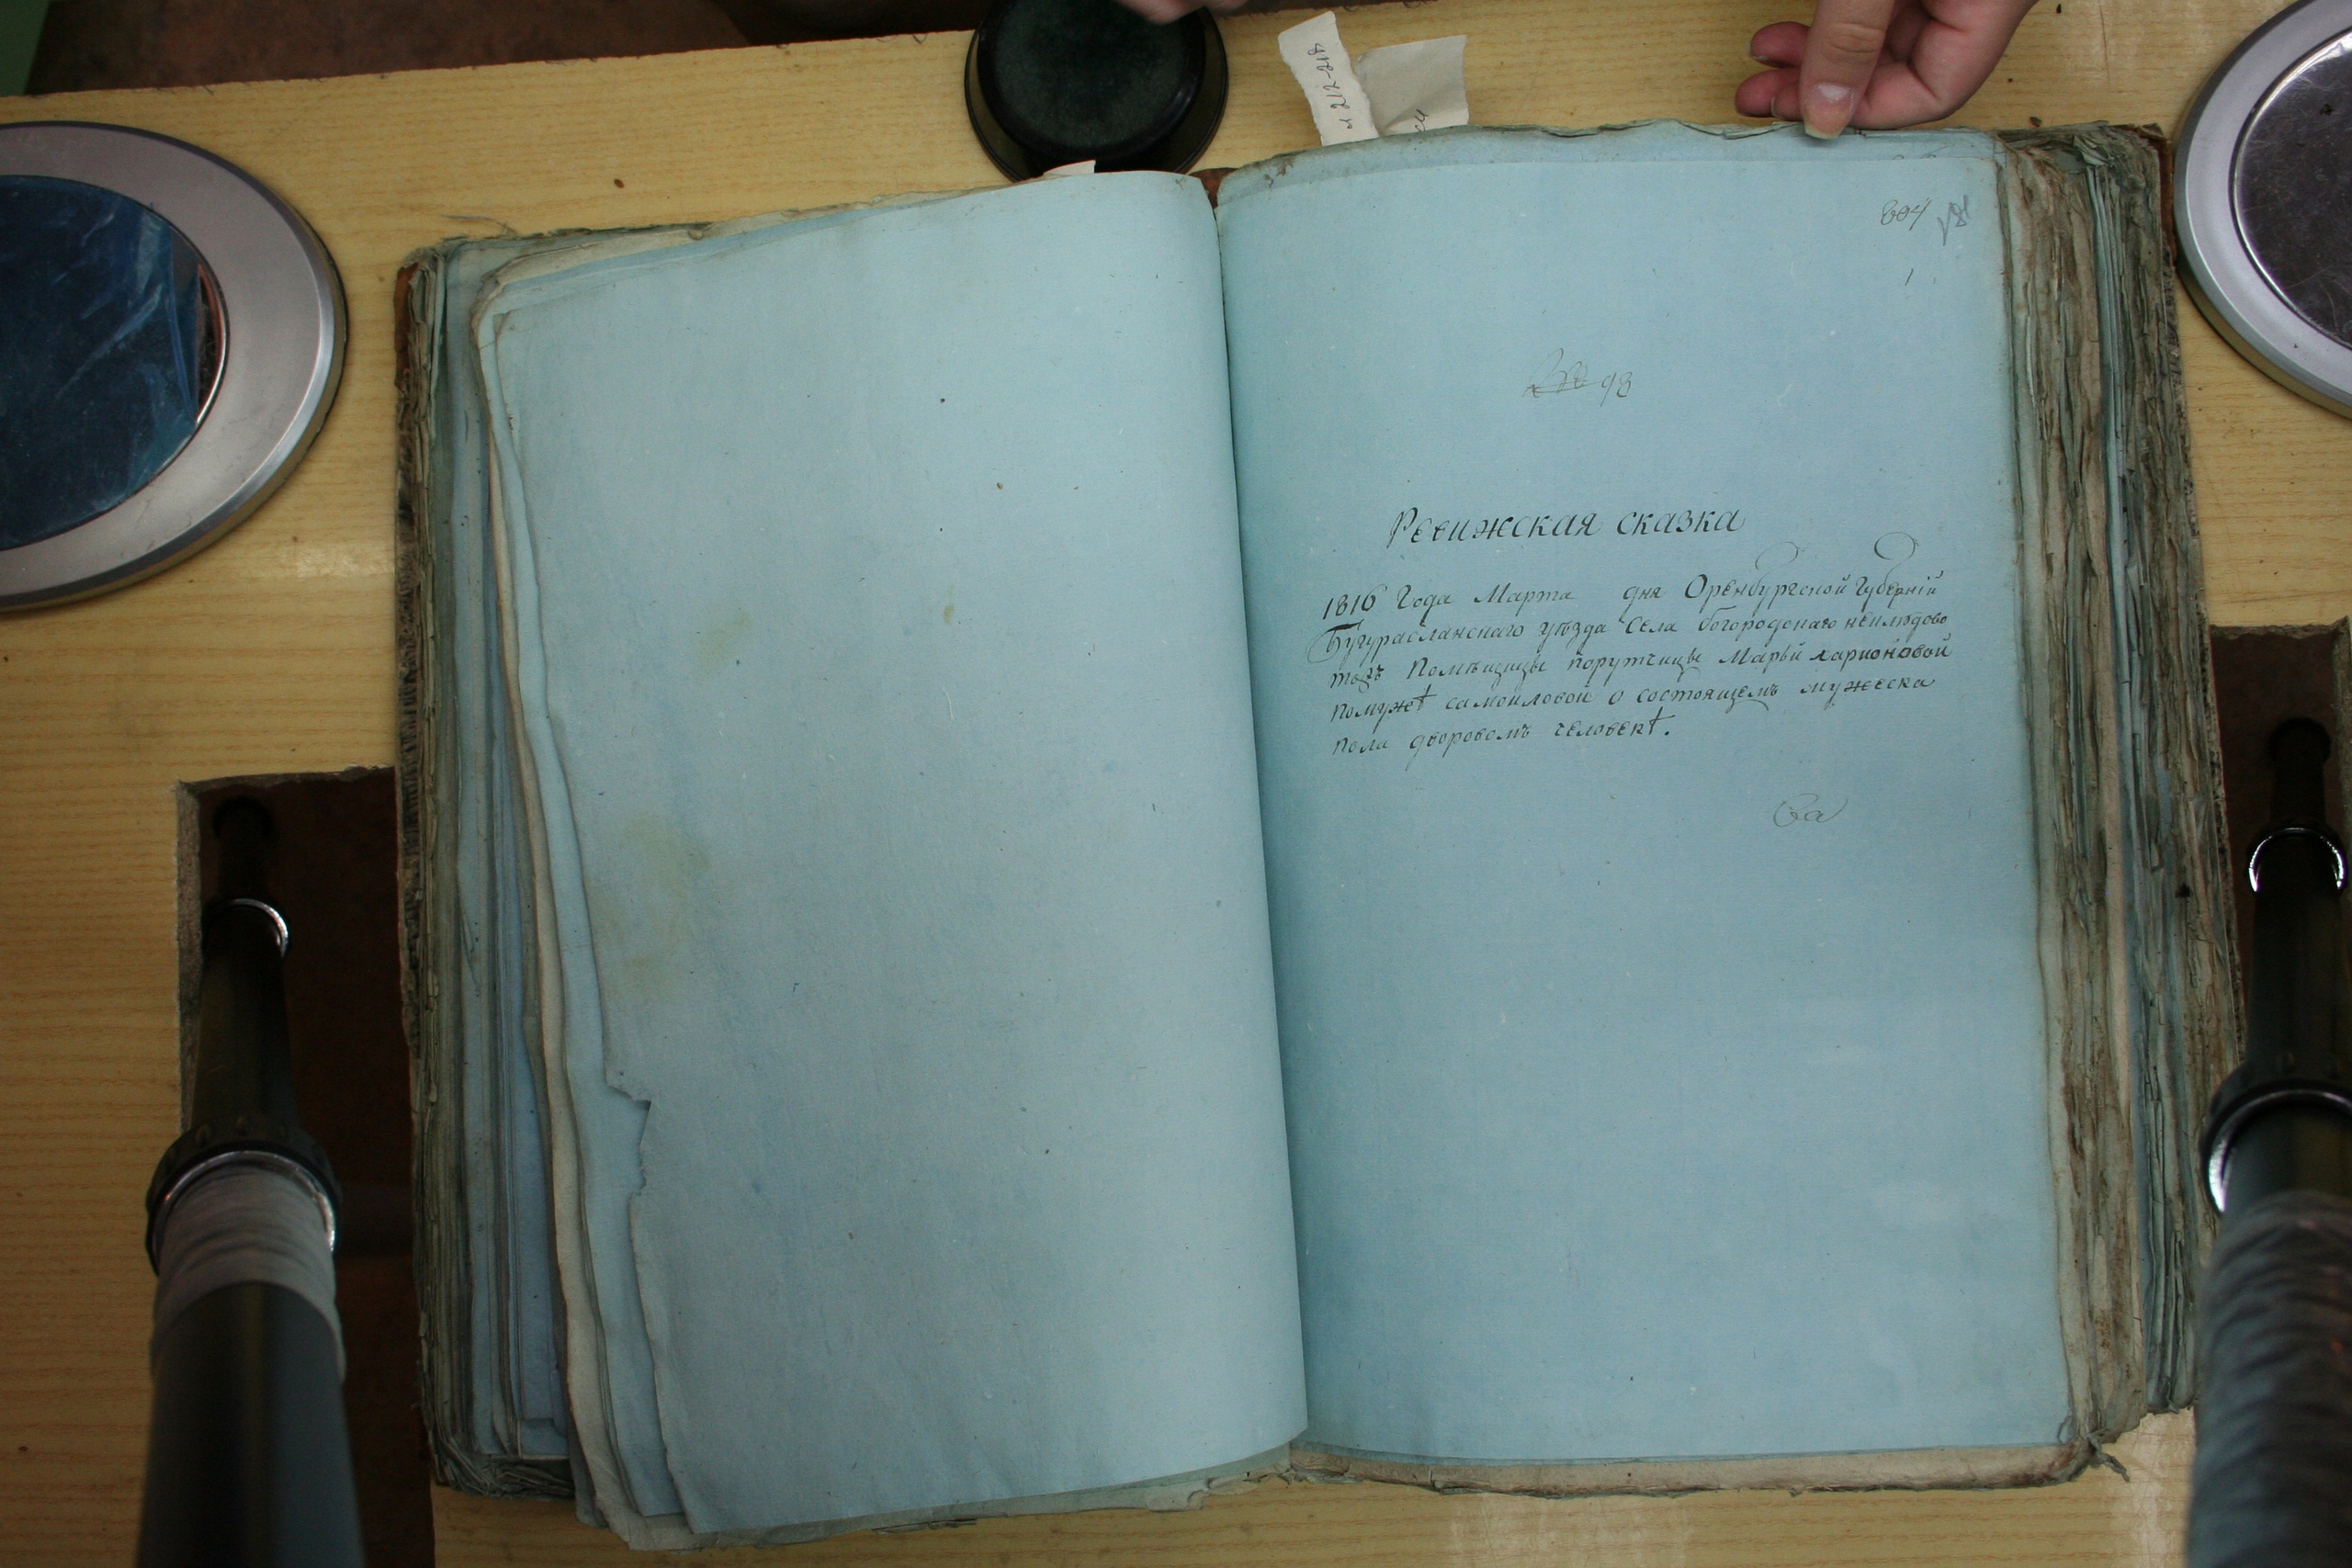 л 212-218
804
1
98
Ревижская сказка
1816 Года Марта дня Оренбургской Губернїи
Бугурасланскаго уѣзда Села богородскаго неклюдово
тожъ Помѣщицы порутчицы Марьи ларионовой
помужѣ самойловой о состоящемъ мужеска
пола дворовомъ человекѣ.